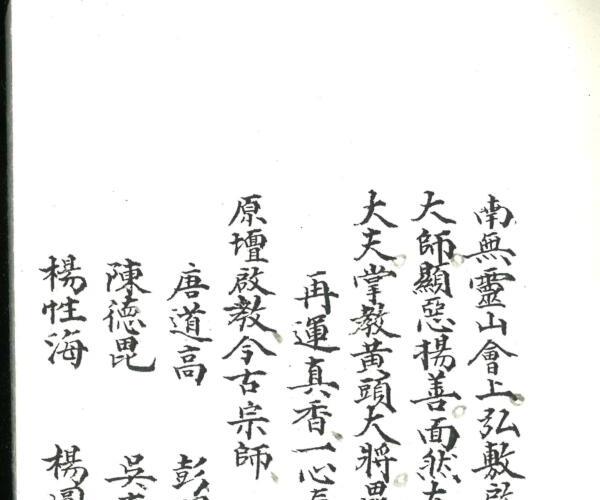 南無靈山會上弘敷
大師顯惡楊善面然
大夫掌教黃頭大將
再運真香一心
原壇啟教今古宗師
唐道高 彭
陳德毘 吳
楊性海 楊